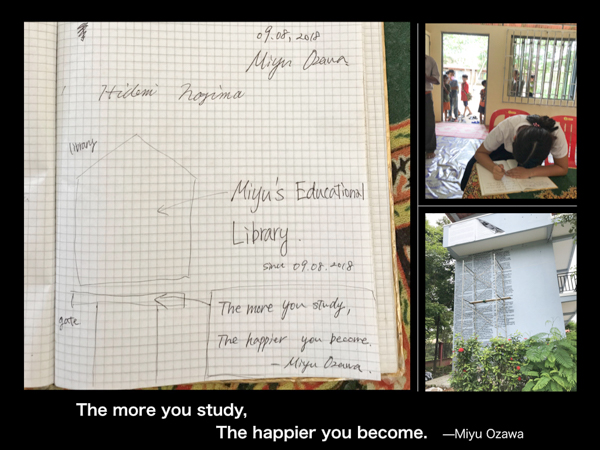 09.08, 2018
Miyu Ozawa
Hidemi Nojima
library
Miyu's Educational
Library.
since 09.08.2018
gate
The more you study,
The happier you become.
— Miyu Ozawa.
The more you study,
The happier you become. —Miyu Ozawa